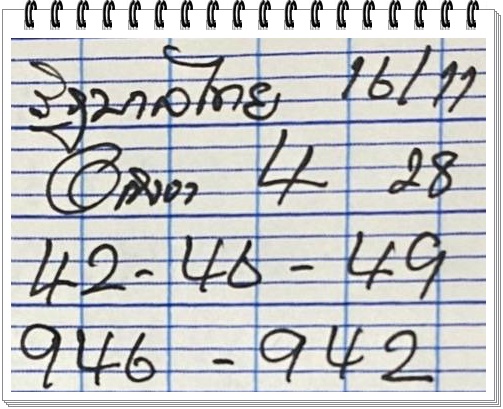 รัฐบาลไทย 16/11
4 28
42-46-49
946-942